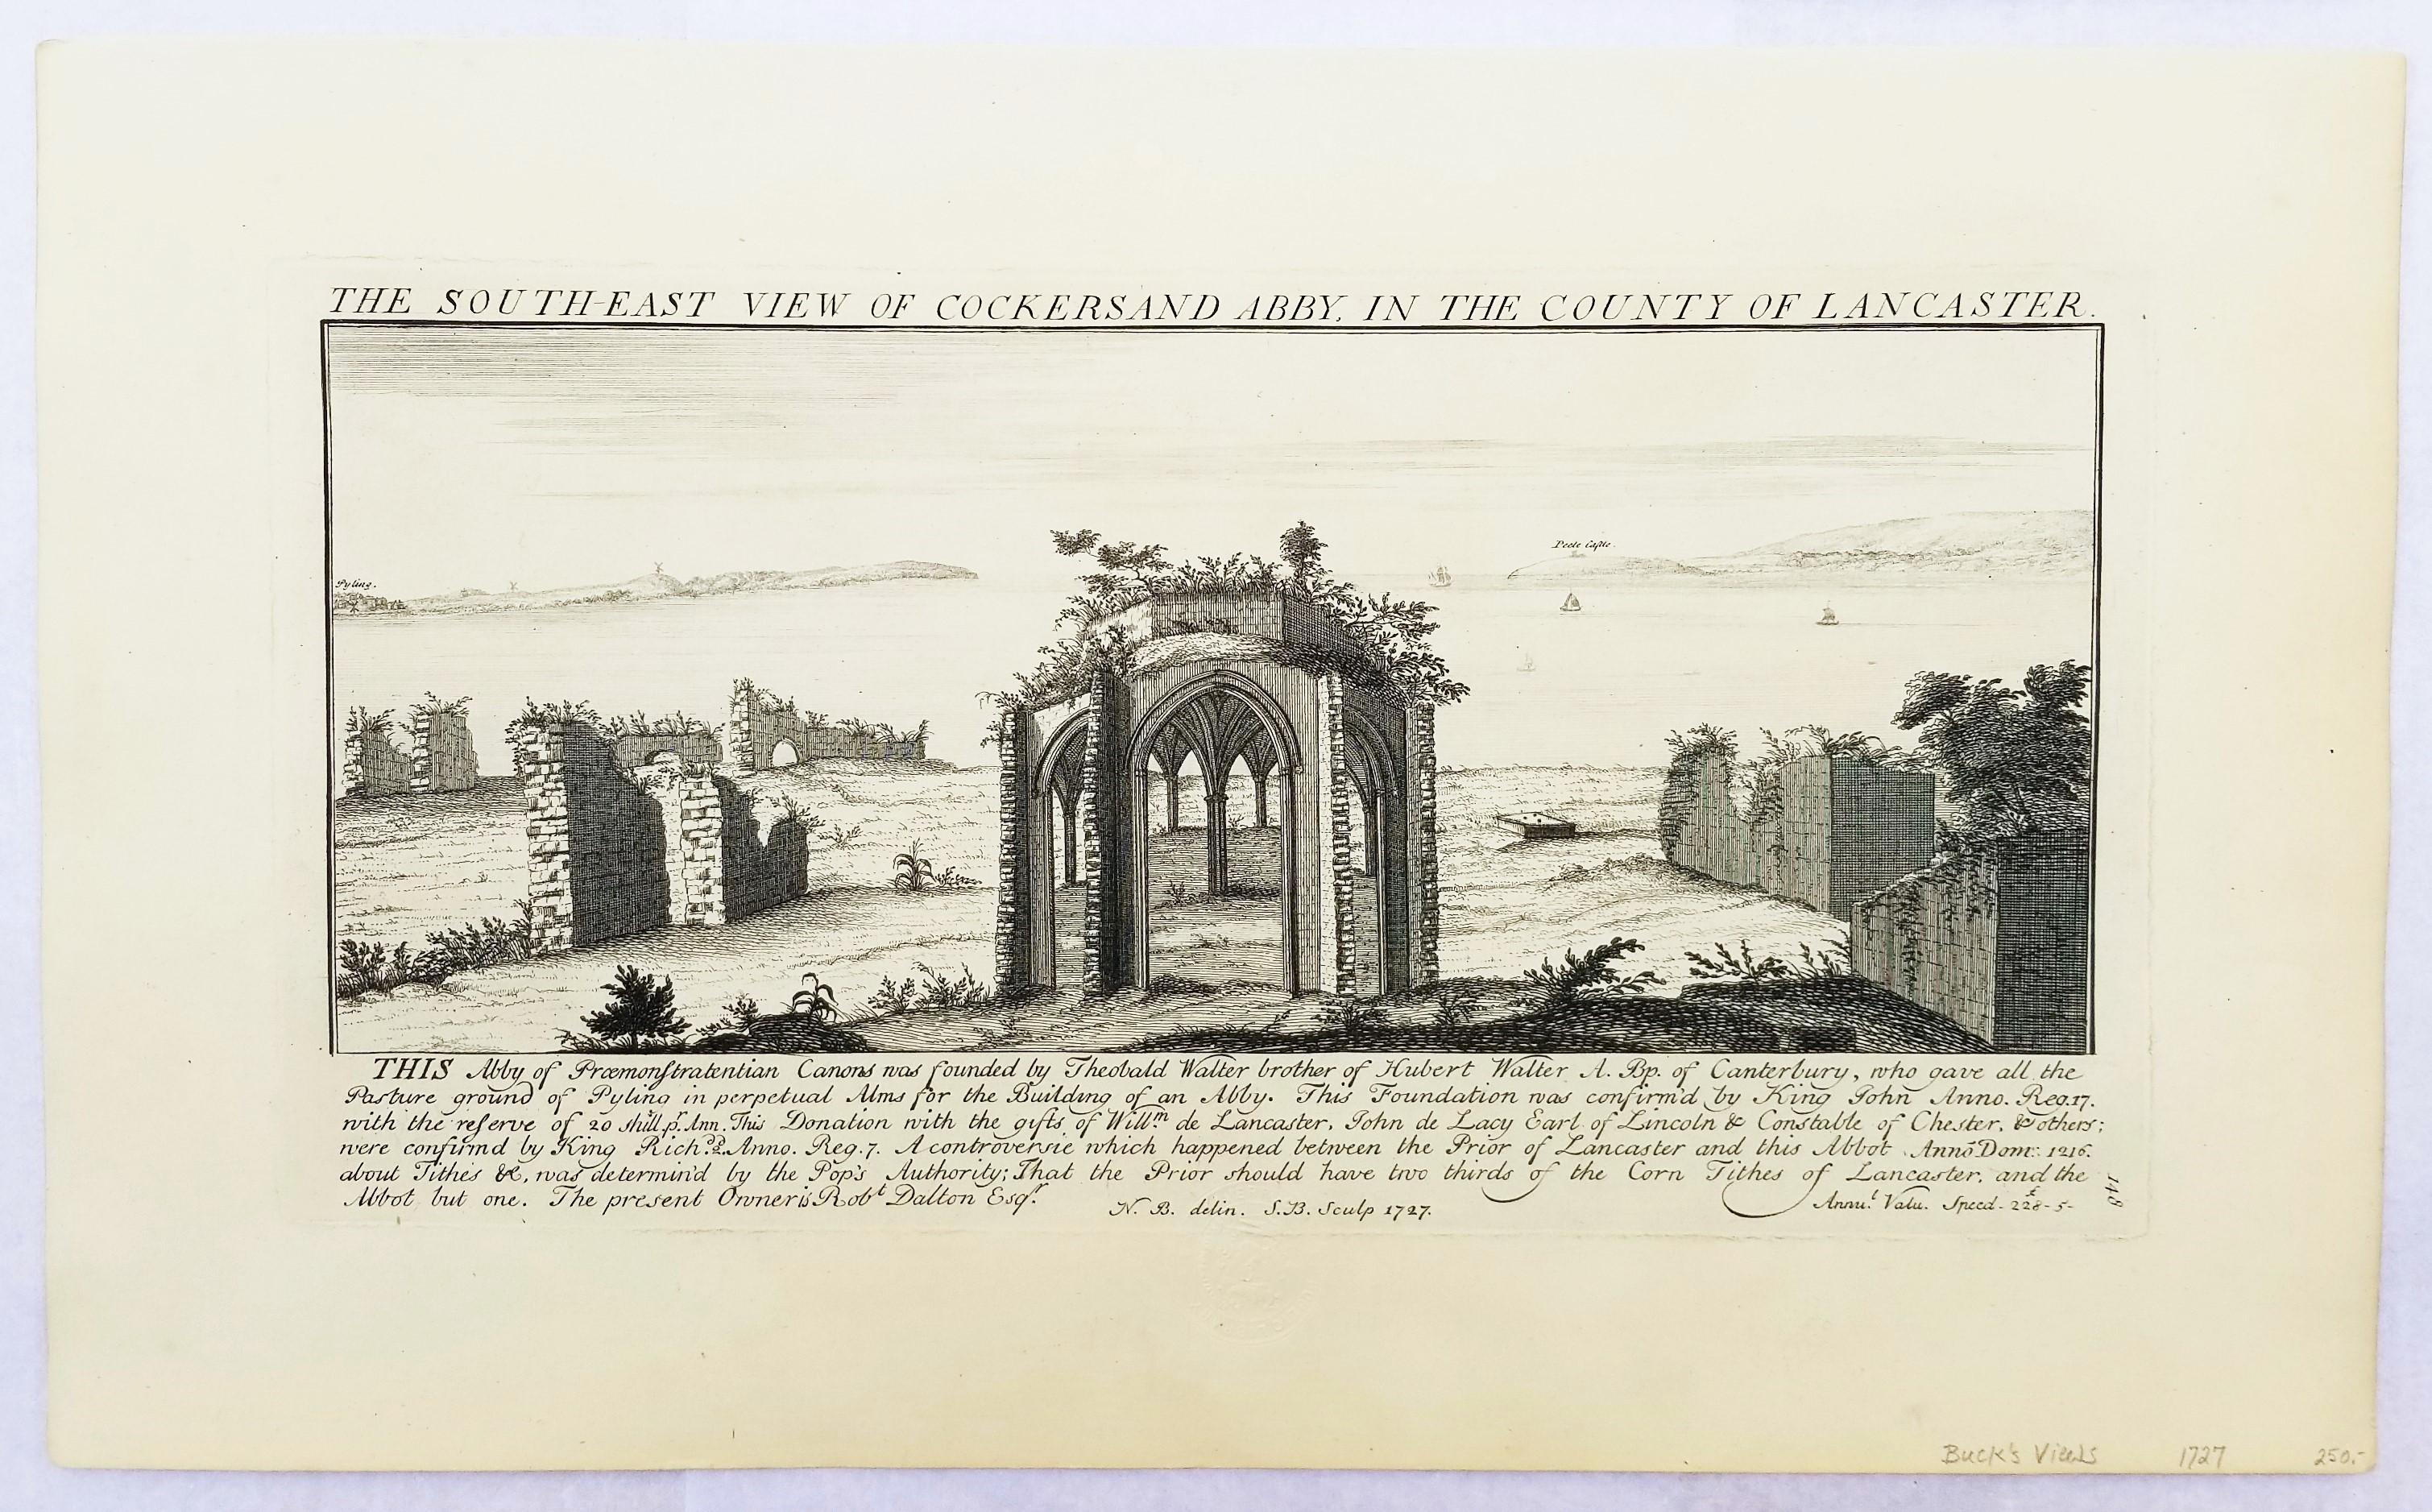 THE SOUTH-EAST VIEW OF COCKERSAND ABBY, IN THE COUNTY OF LANCASTER.
Peele Castle.
Pyling.
THIS Abby of Præmonstratentian Canons was founded by Theobald Walter brother of Hubert Walter A. Bp. of Canterbury, who gave all the
Pasture ground of Pyling in perpetual Alms for the Building of an Abby. This Foundation was confirm'd by King John Anno. Reg. 17.
with the reserve of 20 shill. pr. Ann. This Donation with the gifts of Willm. de Lancaster, John de Lacy Earl of Lincoln & Constable of Chester, & others;
were confirmd by King Richd. 2d. Anno. Reg. 7. A controversie which happened between the Prior of Lancaster and this Abbot Anno Dom: 1216.
about Tithes &c, was determin'd by the Pop's Authority; That the Prior should have two thirds of the Corn Tithes of Lancaster, and the
Abbot but one. The present Owner is Robt Dalton Esqr.
N. B. delin. S. B. Sculp 1727.
Annul. Valu. Speed - 228 - 5 -
148
Buck's Views 1727 250.-